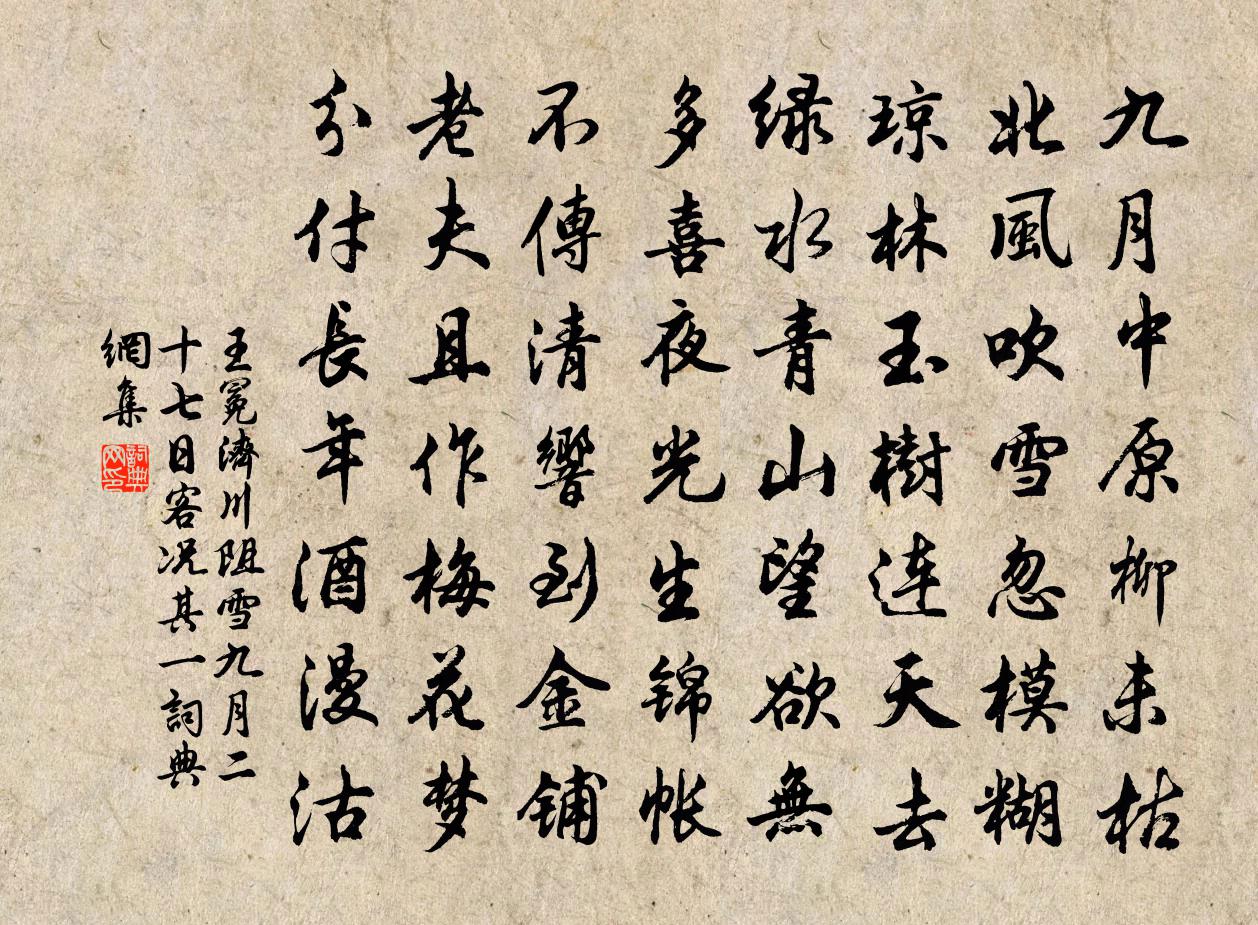 九月中原柳未枯
北風吹雪忽模糊
琼林玉樹連天去
绿水青山望欲無
多喜夜光生锦帐
不傳清響到金铺
老夫且作梅花梦
分付長年酒漫沽
王冕濟川阻雪九月二
十七日客况其一詞典
網集
詞典
网印